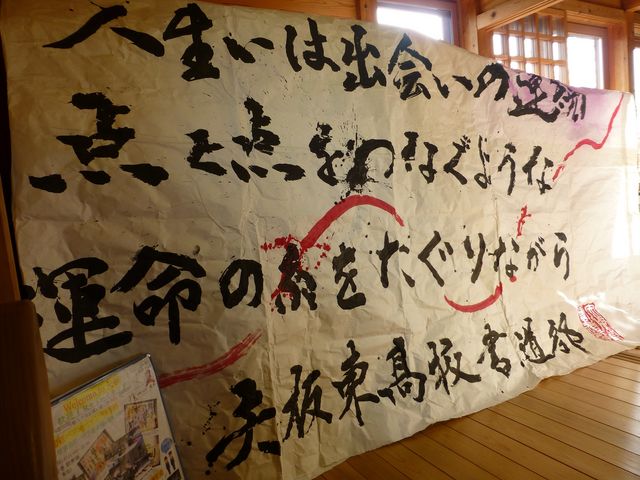 人生いは出会いの連続
点と点をつなぐような
運命の糸をたぐりながら
矢板東高校書道部
Welcome